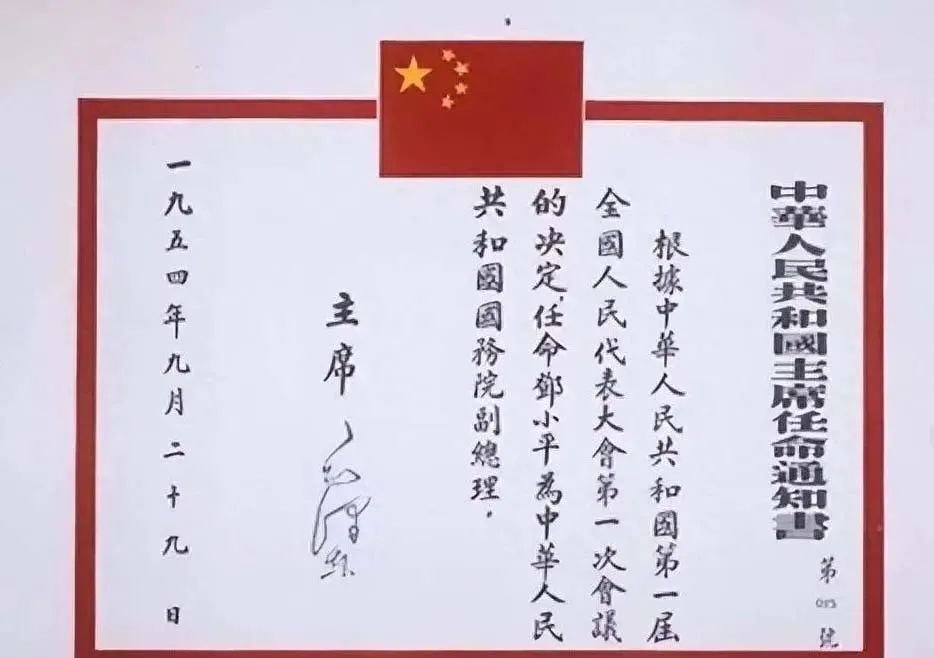 中華人民共和國主席任命通知書
第015號
根據中華人民共和國第一屆
全國人民代表大會第一次會議
的决定，任命鄧小平為中華人民
共和國國務院副總理。
主席 毛澤东
一九五四年九月二十九日